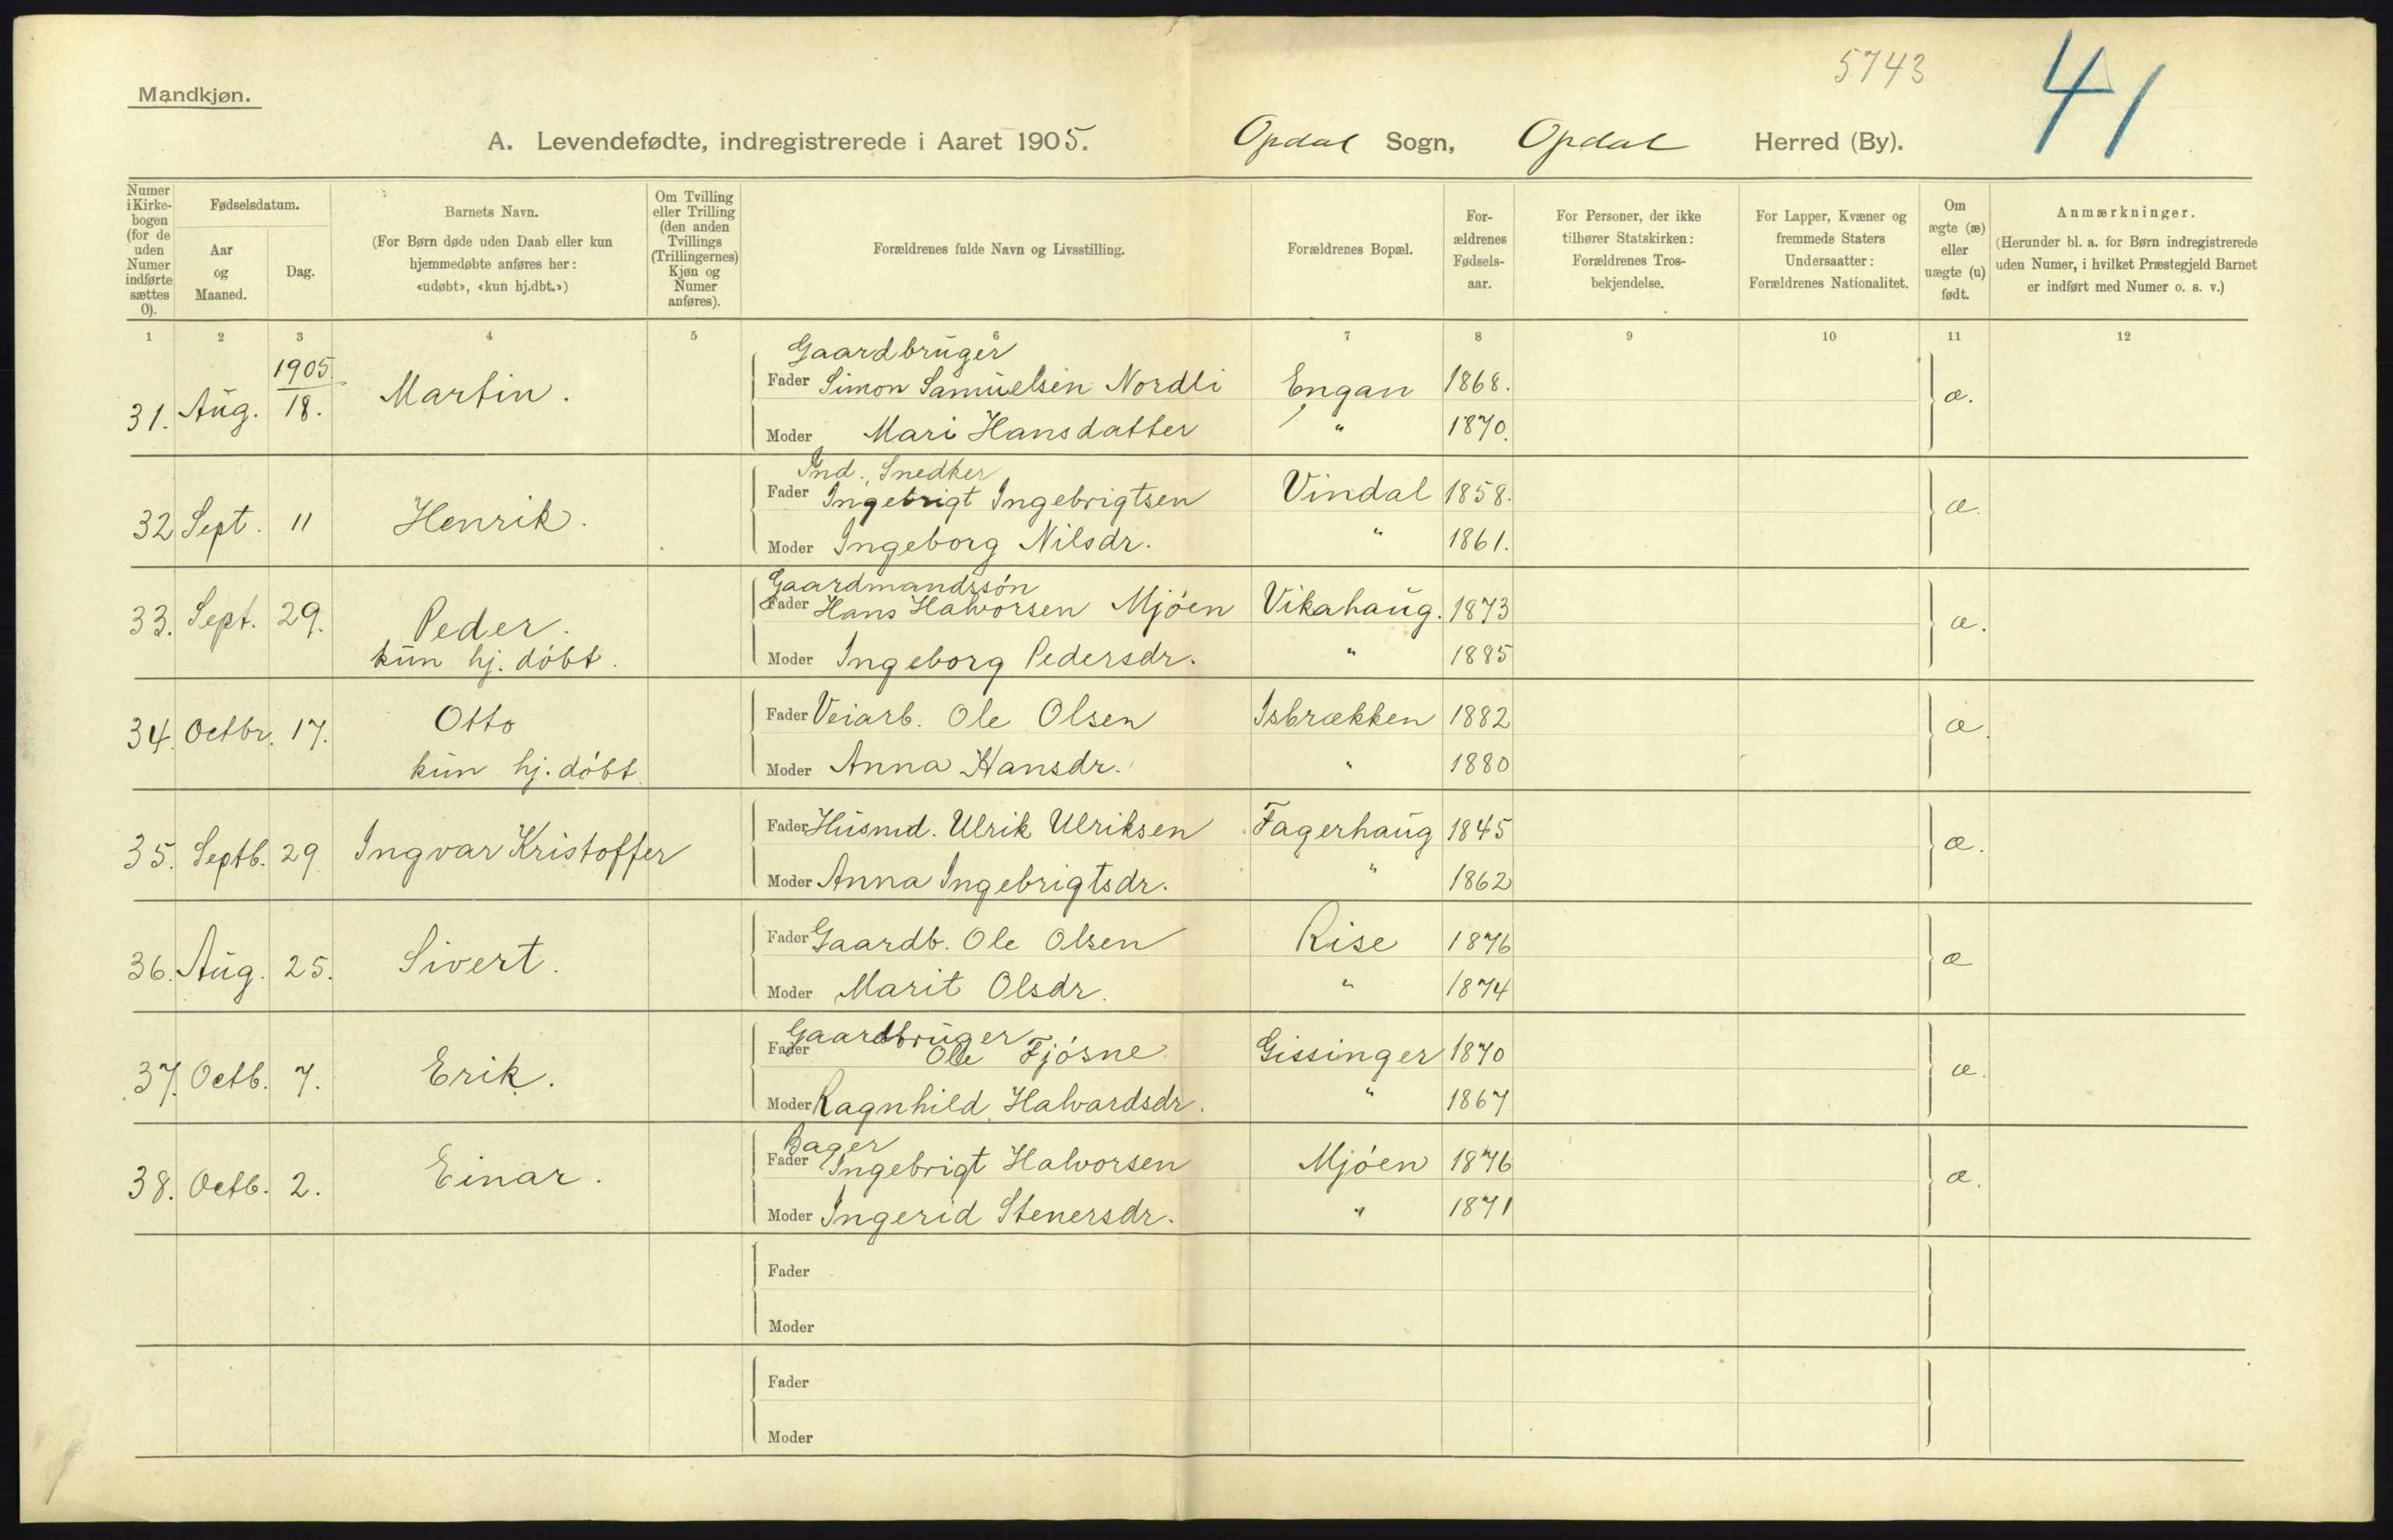 5743
41
Mandkjøn.
A. Levendefødte, indregistrerede i Aaret 1905. Opdal Sogn, Opdal Herred (By).
Numer i Kirkebogen (for de uden Numer indførte sættes 0).
Fødselsdatum.
Aar og Maaned.
Dag.
Barnets Navn.
(For Børn døde uden Daab eller kun
hjemmedøbte anføres her:
«udøbt», «kun hj.dbt.»)
Om Tvilling
eller Trilling
(den anden
Tvillings
(Trillingernes)
Kjøn og
Numer
anføres).
Forældrenes fulde Navn og Livsstilling.
Forældrenes Bopæl.
For-
ældrenes
Fødsels-
aar.
For Personer, der ikke
tilhører Statskirken:
Forældrenes Tros-
bekjendelse.
For Lapper, Kvæner og
fremmede Staters
Undersaatter:
Forældrenes Nationalitet.
Om
ægte (æ)
eller
uægte (u)
født.
Anmærkninger.
(Herunder bl. a. for Børn indregistrerede
uden Numer, i hvilket Præstegjeld Barnet
er indført med Numer o. s. v.)
1 2 3 4 5 6 7 8 9 10 11 12
1905.
Gaardbruger
31. Aug. 18. Martin. Fader Simon Samuelsen Nordli Engan 1868. æ.
Moder Mari Hansdatter " 1870.
Ind., Snedker
32 Sept. 11 Henrik. Fader Ingebrigt Ingebrigtsen Vindal 1858. æ.
Moder Ingeborg Nilsdr. " 1861.
Gaardmandssón
33. Sept. 29. Peder. Fader Hans Halvorsen Mjóen Vikahaug. 1873 æ.
kun hj. dóbt. Moder Ingeborg Pedersdr. " 1885
34. Octbr. 17. Otto Fader Veiarb. Ole Olsen Isbrækken 1882 æ.
kun hj. dóbt. Moder Anna Hansdr. " 1880
35. Septb. 29. Ingvar Kristoffer Fader Husmd. Ulrik Ulriksen Fagerhaug 1845 æ.
Moder Anna Ingebrigtsdr. " 1862
36. Aug. 25. Sivert. Fader Gaardb. Ole Olsen Rise 1876 æ
Moder Marit Olsdr. " 1874
Gaardbruger
37. Octb. 7. Erik. Fader Ole Fjósne Gissinger 1870 æ.
Moder Ragnhild Halvardsdr. " 1867
Bager
38. Octb. 2. Einar. Fader Ingebrigt Halvorsen Mjóen 1876 æ.
Moder Ingerid Stenersdr. " 1871
Fader
Moder
Fader
Moder